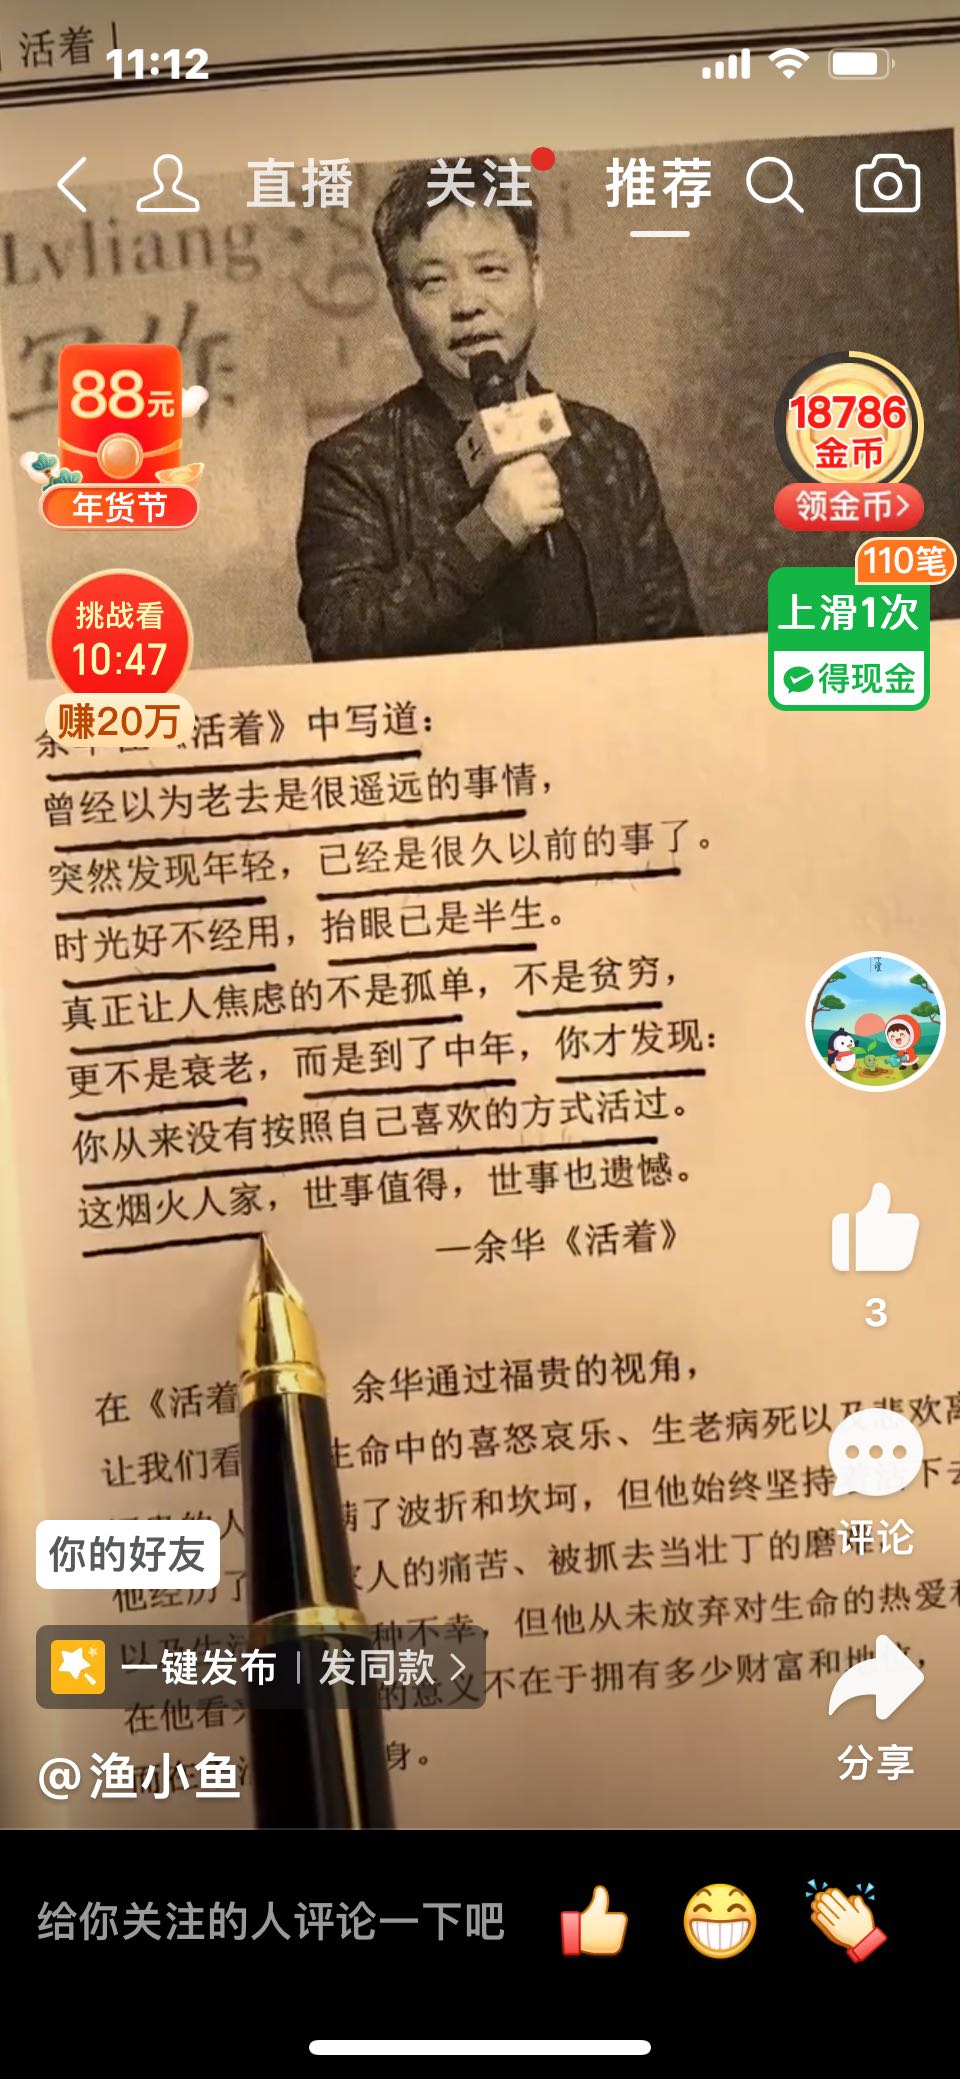 活着
11:12
直播 关注 推荐
Lvliang
写作
88元
年货节
18786
金币
领金币>
110笔
上滑1次
得现金
挑战看
10:47
赚20万
《活着》中写道：
曾经以为老去是很遥远的事情，
突然发现年轻，已经是很久以前的事了。
时光好不经用，抬眼已是半生。
真正让人焦虑的不是孤单，不是贫穷，
更不是衰老，而是到了中年，你才发现：
你从来没有按照自己喜欢的方式活过。
这烟火人家，世事值得，世事也遗憾。
—余华《活着》
3
在《活着 余华通过福贵的视角，
让我们看 生命中的喜怒哀乐、生老病死以及悲欢离
满了波折和坎坷，但他始终坚持 活下去
评论
你的好友
他经历了 家人的痛苦、被抓去当壮丁的磨
种不幸，但他从未放弃对生命的热爱和
一键发布 | 发同款 >
在他看 的意义不在于拥有多少财富和地位，
分享
@渔小鱼
身。
给你关注的人评论一下吧